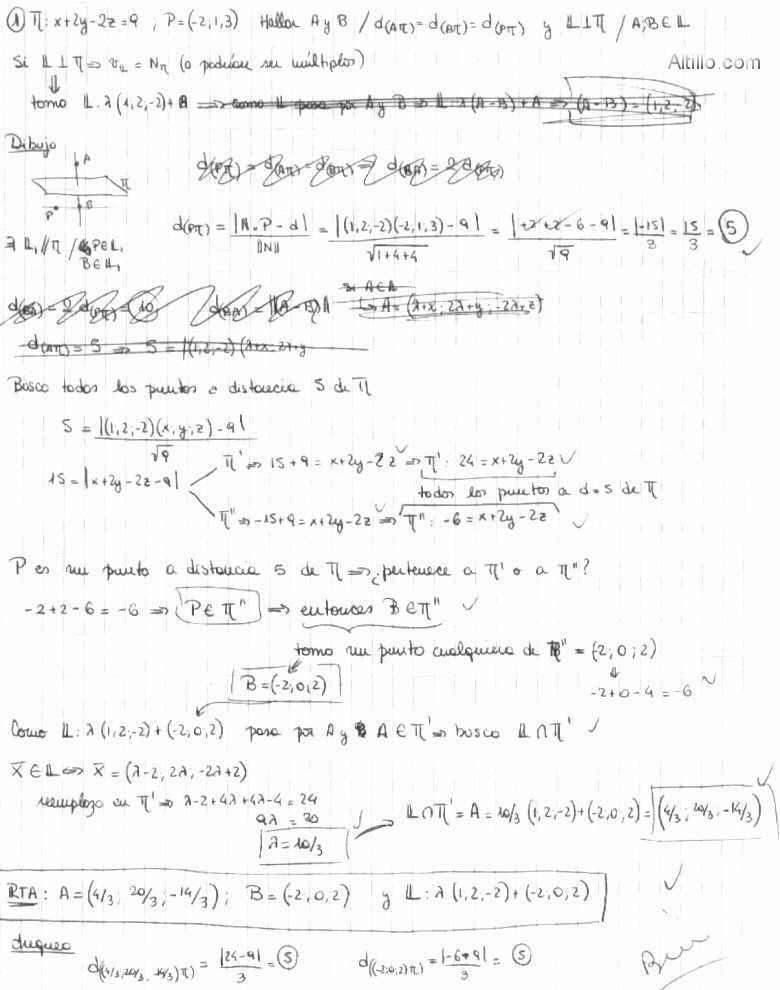 ① Π: x+2y-2z=9 ; P=(-2,1,3) Hallar A y B / d(AΠ)=d(BΠ)=d(PΠ) y 𝕃⊥Π / A,B∈𝕃
Altillo.com
Si 𝕃⊥Π ⇒ v𝕃 = NΠ (o podrían ser múltiplos)
⇓
tomo 𝕃: λ(1,2,-2)+A ⇒ como 𝕃 pasa por A y B ⇒ 𝕃: λ(A-B)+A ⇒ (A-B)=(1,2,-2)
Dibujo
A
Π
P
B
d(PΠ)=d(AΠ)=d(BΠ) ⇒ d(BA)=2d(PΠ)
d(PΠ) = |N.P-d| / ||N|| = |(1,2,-2)(-2,1,3)-9| / √1+4+4 = |+2+2-6-9| / √9 = |-15|/3 = 15/3 = ⑤
∃ 𝕃₁//Π / P∈𝕃₁
B∈𝕃₁
d(BA)=2 d(PΠ)=10 d(BA)=||(A-B)||
si A∈𝕃
↳ A=(λ+x; 2λ+y; -2λ+z)
d(AΠ)=5 ⇒ 5=|(1,2,-2)(λ+x, 2λ+y
Busco todos los puntos a distancia 5 de Π
5 = |(1,2,-2)(x,y,z)-9| / √9
15=|x+2y-2z-9|
Π' ⇒ 15+9=x+2y-2z ⇒ Π': 24=x+2y-2z
todos los puntos a d=5 de Π
Π" ⇒ -15+9=x+2y-2z ⇒ Π": -6=x+2y-2z
P es un punto a distancia 5 de Π ⇒ ¿pertenece a Π' o a Π"?
-2+2-6=-6 ⇒ P∈Π" ⇒ entonces B∈Π"
tomo un punto cualquiera de Π" = (-2;0;2)
B=(-2,0,2)
-2+0-4=-6
Como 𝕃: λ(1,2,-2)+(-2,0,2) pasa por A y A∈Π' ⇒ busco 𝕃∩Π'
X∈𝕃 ⇔ X=(λ-2, 2λ, -2λ+2)
reemplazo en Π' ⇒ λ-2+4λ+4λ-4=24
9λ=30
λ=10/3
𝕃∩Π'=A=10/3 (1,2,-2)+(-2,0,2)=(4/3; 20/3; -14/3)
RTA: A=(4/3; 20/3; -14/3); B=(-2,0,2) y 𝕃: λ(1,2,-2)+(-2,0,2)
chequeo
d((4/3,20/3,-14/3)Π) = |24-9|/3 = ⑤ d((-2,0,2)Π) = |-6-9|/3 = ⑤
Bien